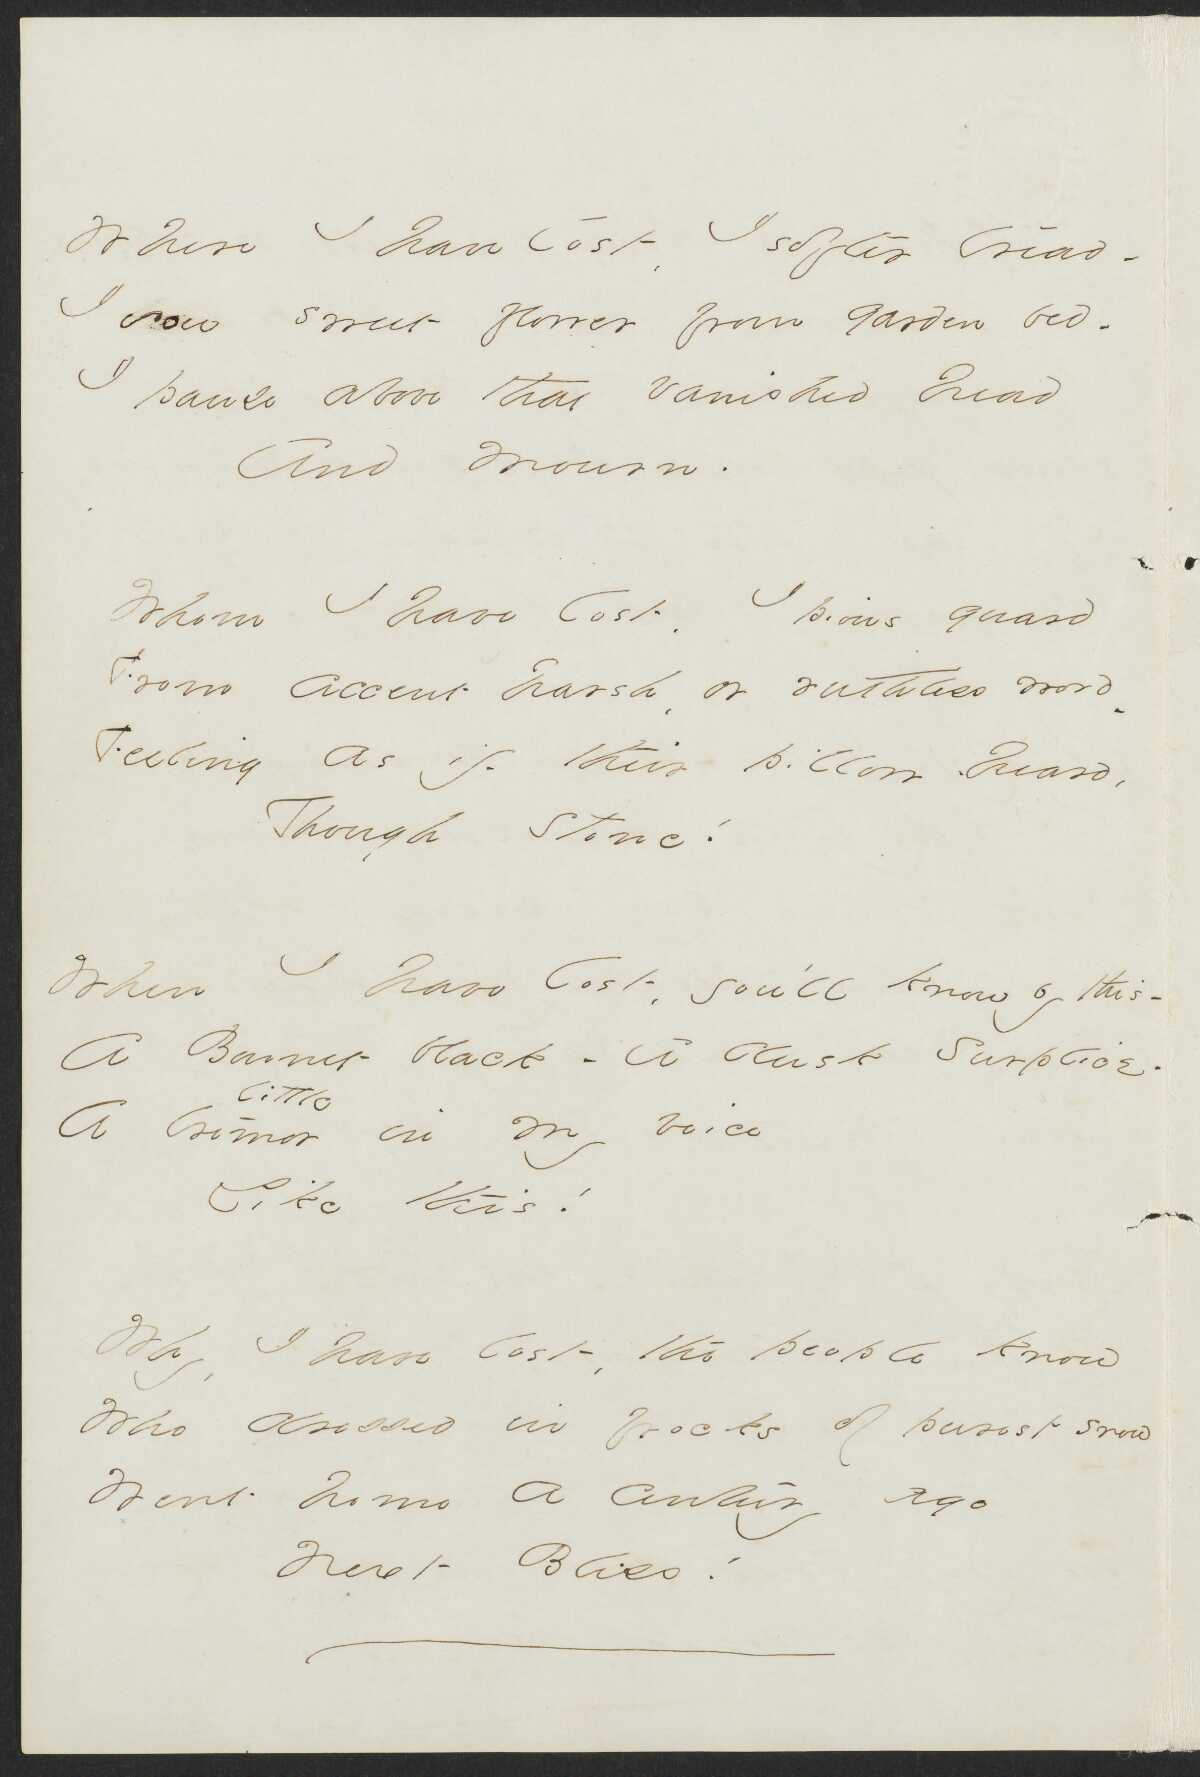 Where I have lost, I softer tread -
I sow sweet flower from garden bed -
I pause above that vanished head
And mourn.
Whom I have lost, I pious guard
From accent harsh, or ruthless word -
Feeling as if their pillow heard,
Though stone!
When I have lost, you'll know by this -
A Bonnet black - A dusk surplice -
little
A tremor in my voice
Like this!
Why, I have lost, the people know
Who dressed in frocks of purest snow
Went home a century ago
Next Bliss!